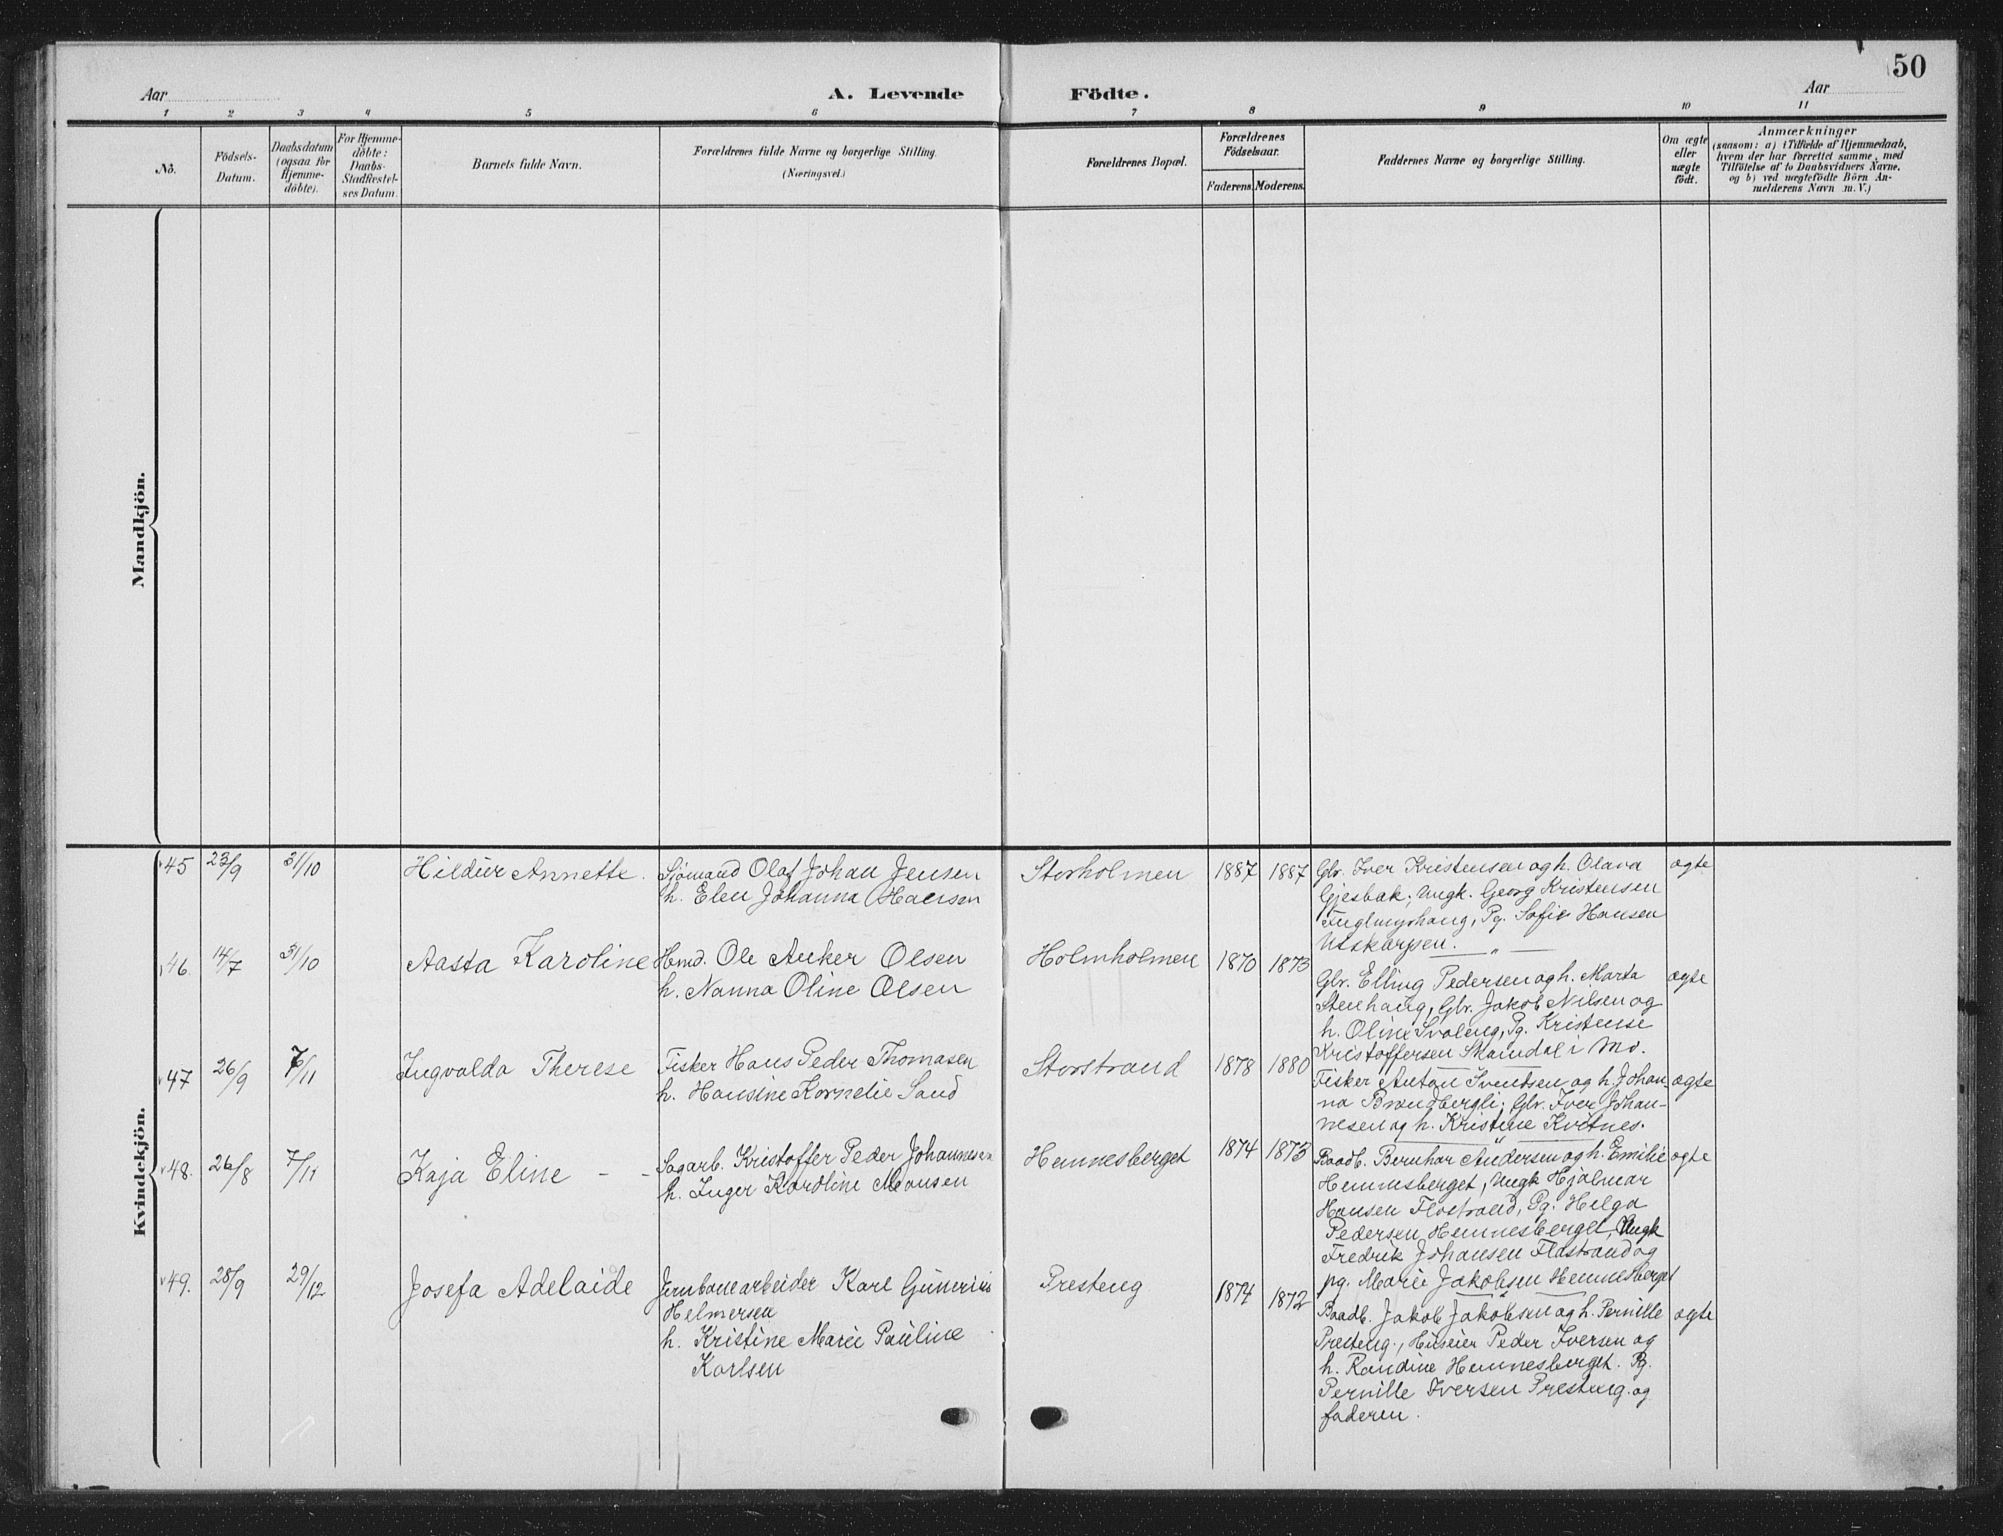 50
Aar
A. Levende
Födte.
Aar
1 2 3 4 5 6 7 8 9 10 11
No.
Födsels-
Datum.
Daabsdatum
(ogsaa for
Hjemme-
döbte).
For Hjemme-
döbte:
Daabs-
Stadfæstel-
ses Datum.
Barnets fulde Navn.
Forældrenes fulde Navne og borgerlige Stilling.
(Næringsvei.)
Forældrenes Bopæl.
Forældrenes
Födselsaar.
Faderens. Moderens.
Faddernes Navne og borgerlige Stilling.
Om ægte
eller
uægte
födt.
Anmærkninger
(saasom: a) i Tilfælde af Hjemmedaab,
hvem der har forrettet samme, med
Tilföielse af to Daabsvidners Navne.
og b) ved uægtefödte Börn An-
melderens Navn m. V.)
Mandkjön.
Kvindekjön.
45 23/9 31/10
Hildur Annette.
Sjömand Olaf Johan Jensen
h. Elen Johanna Hansen
Storholmen
1887 1887
Gbr. Iver Kristensen og h. Olava
Gjesbak, Ungk. Georg Kristensen
Fuglmyshaug, Pg. Sofie Hansen
Utskarpen.
ægte
46 14/7 31/10
Aasta Karoline
Hmd. Ole Anker Olsen
h. Nanna Oline Olsen
Holmholmen
1870 1873
Gbr. Elling Pedersen og h. Marta
Stenhaug, Gbr. Jakob Nilsen og
h. Oline Svaleng, Pg. Kristense
Kristoffersen Skamdal i Mo.
ægte
47 26/9 7/11
Ingvalda Therese
Fisker Hans Peder Thomasen
h. Hansine Kornelie Sand
Storstrand
1878 1880
Fisker Anton Svendsen og h. Johan-
na Brændbergli, Gbr. Iver Johan-
nesen og h. Kristine Kvitnes.
ægte
48. 26/8 7/11
Kaja Eline - -
Sagarb. Kristoffer Peder Johannesen
h. Inger Karoline Monsen
Hemnesberget
1874 1873
Baadb. Bernhar Andersen og h. Emilie
Hemnesberget, Ungk Hjalmar
Hansen Flostrand, Pg. Helga
Pedersen Hemnesberget, Ungk
Fredrik Johansen Flostrand og
pg. Marie Jakobsen Hemnesberget
ægte
49. 28/9 29/12
Josefa Adelaide
Jernbanearbeider Karl Gunerius
Helmersen
h. Kristine Marie Pauline
Karlsen
Presteng
1874 1872
Baadb. Jakob Jakobsen og h. Pernille
Presteng., Huseier Peder Iversen og
h. Randine Hemnesberget. Pg.
Pernille Iversen Presteng. og
faderen.
ægte